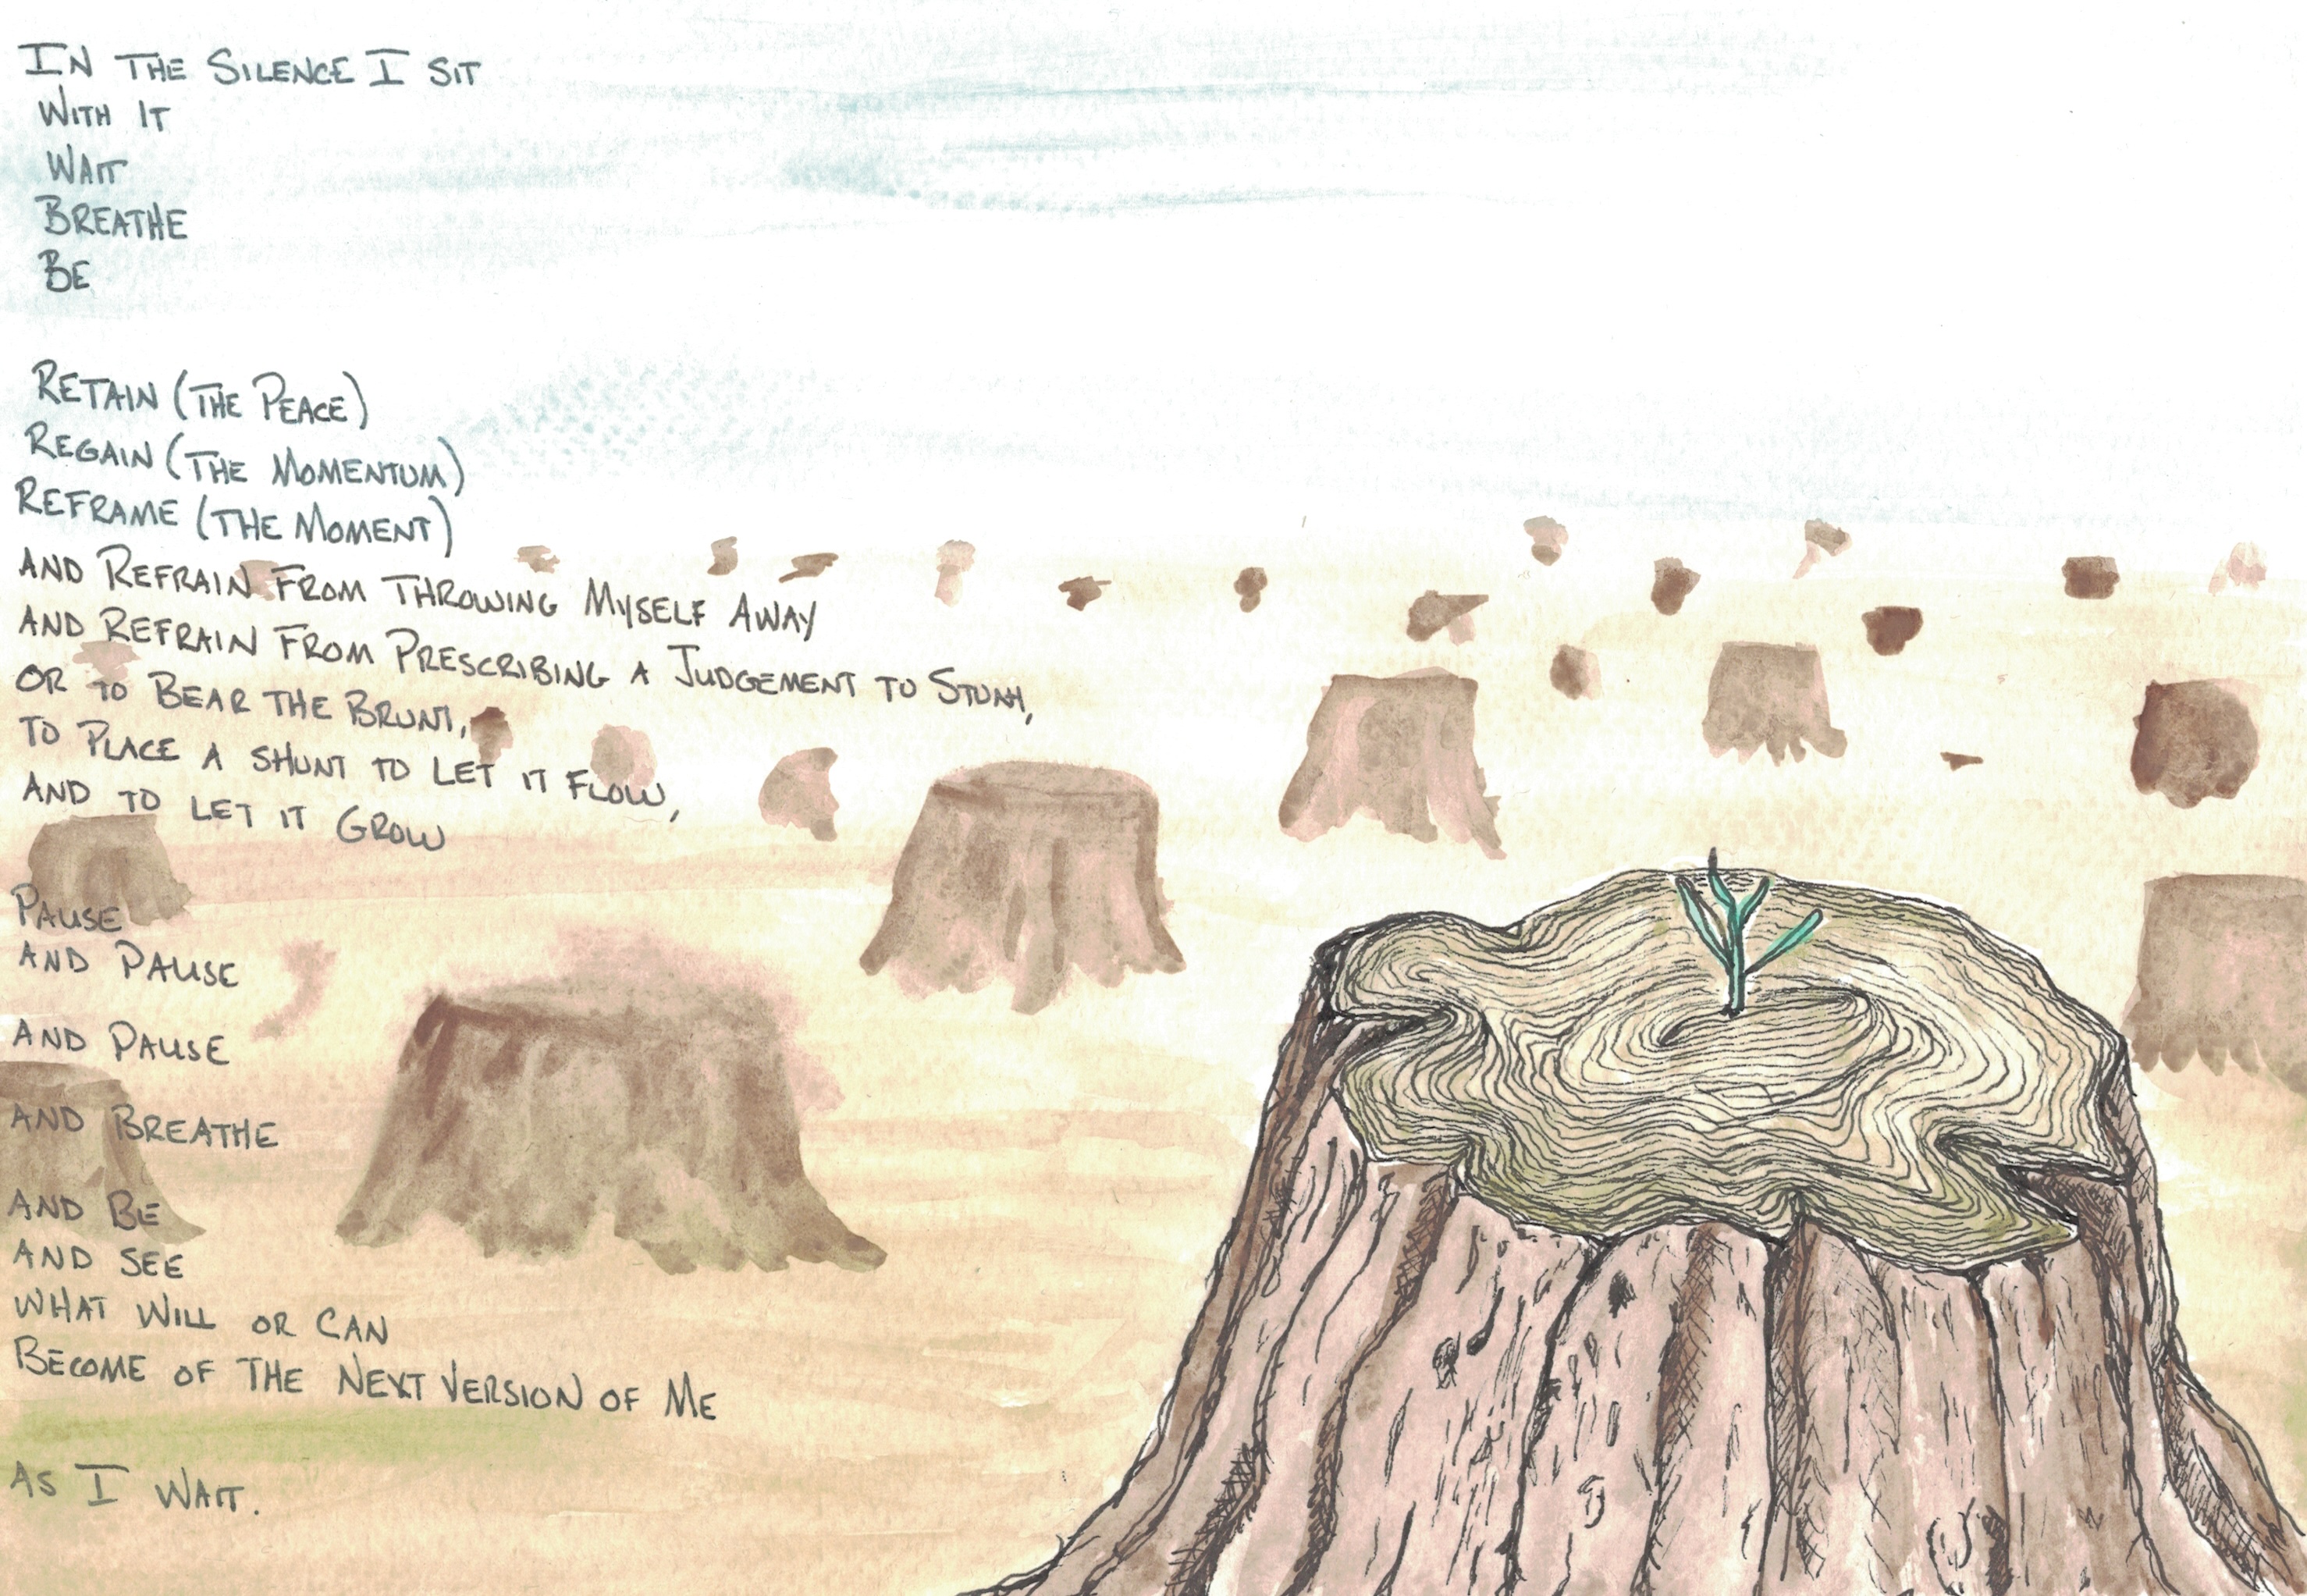 In the Silence I sit
With It
Wait
Breathe
Be
Retain (The Peace)
Regain (The Momentum)
Reframe (The Moment)
and Refrain From Throwing Myself Away
and Refrain From Prescribing a Judgement to
or to Bear the Brunt,
to Place a shunt to let it flow,
and to let it Grow
Pause
and Pause
and Pause
and Breathe
and Be
and see
what Will or Can
Become of the Next Version of Me
as I Wait.